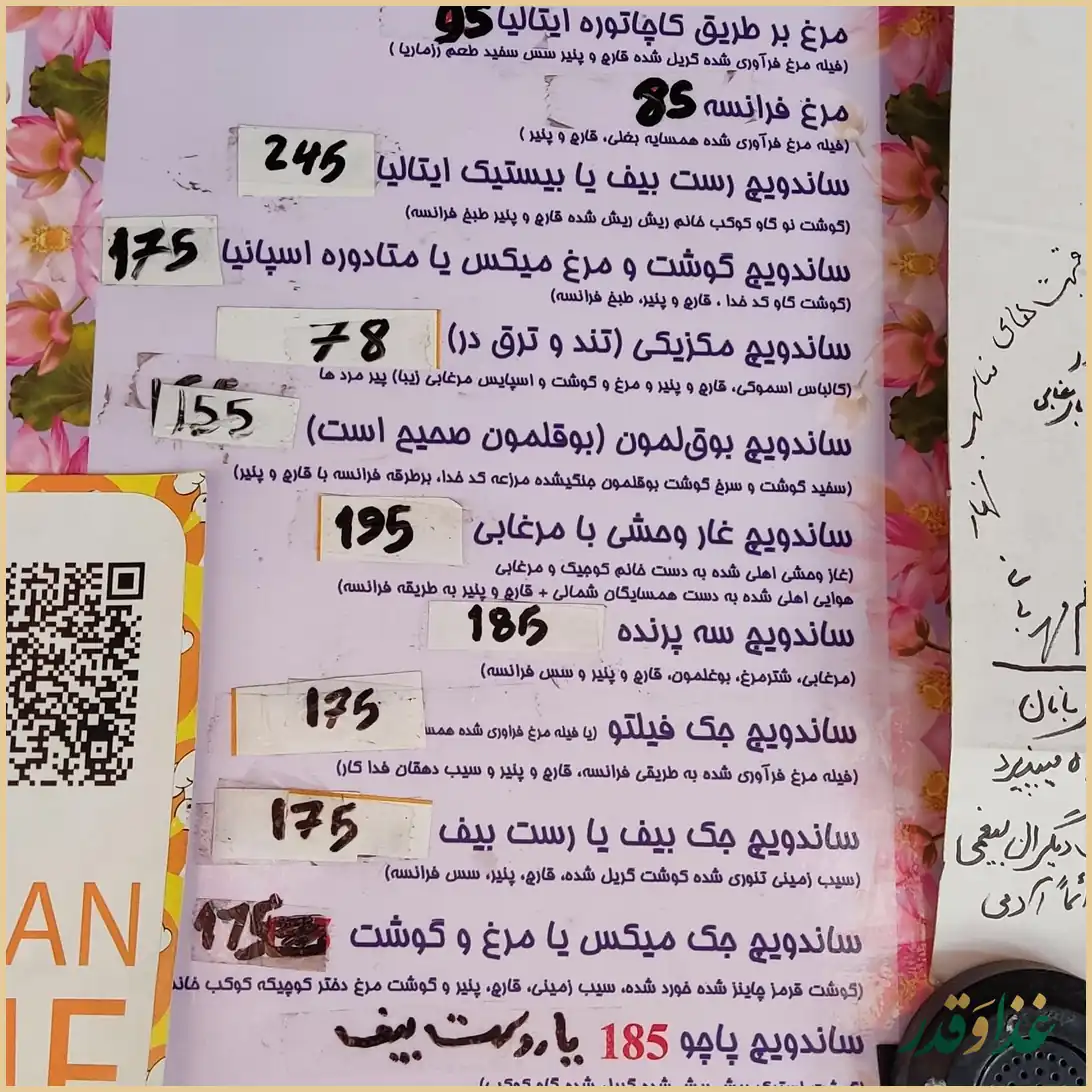 مرغ بر طریق کاچاتوره ایتالیا 95
(فیله مرغ فرآوری شده گریل شده قارچ و پنیر سس سفید طعم رزماریا )
مرغ فرانسه 85
(فیله مرغ فرآوری شده همسایه بغلی، قارچ و پنیر )
ساندویچ رست بیف یا بیستیک ایتالیا 245
(گوشت نو گاو کوکب خانم ریش ریش شده قارچ و پنیر طبخ فرانسه)
ساندویچ گوشت و مرغ میکس یا متادوره اسپانیا 175
(گوشت گاو کد خدا ، قارچ و پنیر، طبخ فرانسه)
ساندویچ مکزیکی (تند و ترق در) 78
(کالباس اسموکی، قارچ و پنیر و مرغ و گوشت و اسپایس مرغابی زیبا) پیر مرد ها
ساندویچ بوق‌لمون (بوقلمون صحیح است) 155
(سفید گوشت و سرخ گوشت بوقلمون جنگیشده مزرعه کد خدا، برطرقه فرانسه با قارچ و پنیر)
ساندویچ غاز وحشی با مرغابی 195
(غاز وحشی اهلی شده به دست خانم کوجیک و مرغابی
هوایی اهلی شده به دست همسایگان شمالی + قارچ و پنیر به طریقه فرانسه)
ساندویچ سه پرنده 185
(مرغابی، شترمرغ، بوغلمون، قارچ و پنیر و سس فرانسه)
ساندویچ جک فیلتو (یا فیله مرغ فراوری شده همس 175
(فیله مرغ فرآوری شده به طریقی فرانسه، قارچ و پنیر و سیب دهقان فدا کار)
ساندویچ جک بیف یا رست بیف 175
(سیب زمینی تنوری شده گوشت گریل شده، قارچ، پنیر، سس فرانسه)
ساندویچ جک میکس یا مرغ و گوشت 175
(گوشت قرمز چاینز شده خورد شده، سیب زمینی، قارچ، پنیر و گوشت مرغ دختر کوچیکه کوکب خاند
ساندویچ پاچو 185 یا روست بیف
AN
قیمت های
مهربان
میپذیرد
دیگران
آدمی
غذا و قدر